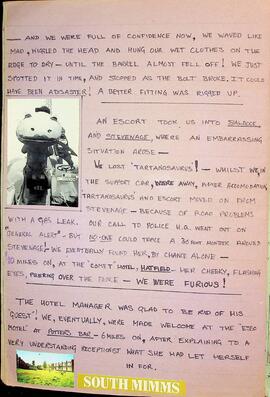 — AND WE WERE FULL OF CONFIDENCE NOW, WE WAVED LIKE
MAD, WIGGLED THE HEAD AND HUNG OUR WET CLOTHES ON THE
EDGE TO DRY — UNTIL THE BARREL ALMOST FELL OFF! WE JUST
SPOTTED IT IN TIME, AND STOPPED AS THE BOLT BROKE. IT COULD
HAVE BEEN A DISASTER! A BETTER FITTING WAS RIGGED UP.
AN ESCORT TOOK US INTO BALDOCK
AND STEVENAGE, WHERE AN EMBARRASSING
SITUATION AROSE —
WE LOST 'TARTANOSAURUS'! — WHILST WE, IN
THE SUPPORT CAR, WERE AWAY, AFTER ACCOMODATION,
TARTANOSAURUS AND ESCORT MOVED ON FROM
STEVENAGE — BECAUSE OF ROAD PROBLEMS
WITH A GAS LEAK. OUR CALL TO POLICE H.Q. WENT OUT ON
"GENERAL ALERT" — BUT NO-ONE COULD TRACE A 30 FOOT MONSTER AROUND
STEVENAGE! WE EVENTUALLY FOUND HER, BY CHANCE ALONE —
10 MILES ON, AT THE 'COMET' HOTEL, HATFIELD — HER CHEERY, FLASHING
EYES, PEERING OVER THE FENCE — WE WERE FURIOUS!
THE HOTEL MANAGER WAS GLAD TO BE RID OF HIS
'GUEST'! WE, EVENTUALLY, WERE MADE WELCOME AT THE 'ESSO
MOTEL' AT POTTERS BAR — 6 MILES ON, AFTER EXPLAINING TO A
VERY UNDERSTANDING RECEPTIONIST WHAT SHE HAD LET HERSELF
IN FOR.
SOUTH MIMMS